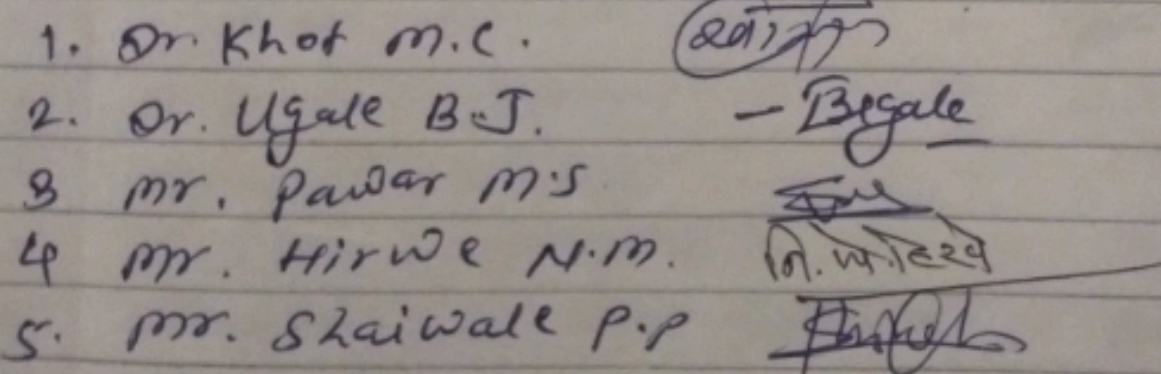 1. Dr. Khot M.C.
2. Dr. Ugale B.J. - Begale
3 Mr. Pawar M.S
4 Mr. Hirwe N.M. नि.म.हिरवे
5. Mr. Shaiwale P.P